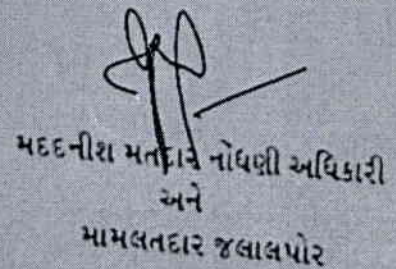 મદદનીશ મતદાર નોંધણી અધિકારી
અને
મામલતદાર જલાલપોર